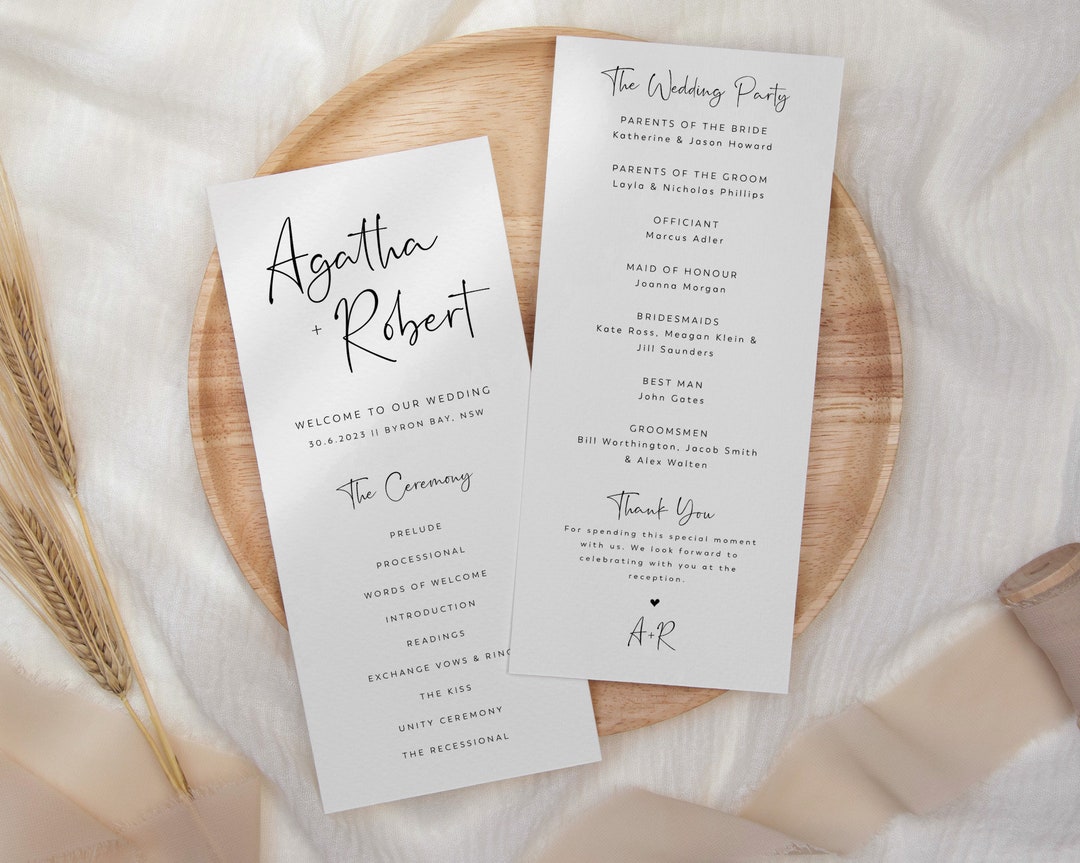 Agatha
+ Robert
WELCOME TO OUR WEDDING
30.6.2023 || BYRON BAY, NSW
The Ceremony
PRELUDE
PROCESSIONAL
WORDS OF WELCOME
INTRODUCTION
READINGS
EXCHANGE VOWS & RING
THE KISS
UNITY CEREMONY
THE RECESSIONAL
The Wedding Party
PARENTS OF THE BRIDE
Katherine & Jason Howard
PARENTS OF THE GROOM
Layla & Nicholas Phillips
OFFICIANT
Marcus Adler
MAID OF HONOUR
Joanna Morgan
BRIDESMAIDS
Kate Ross, Meagan Klein &
Jill Saunders
BEST MAN
John Gates
GROOMSMEN
Bill Worthington, Jacob Smith
& Alex Walten
Thank You
For spending this special moment
with us. We look forward to
celebrating with you at the
reception.
A+R